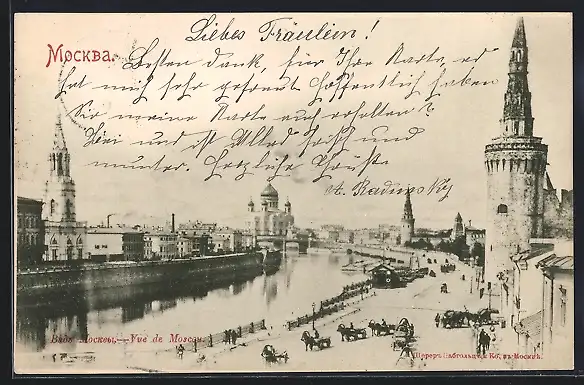 Liebes Fräulein!
Москва.
Besten Dank, für Ihre Karte, es
hat mich sehr gefreut hoffentlich haben
Sie meine Karte auch erhalten?
Hier und ist Alles frisch und
munter. Herzliche Grüsse
A. Radunsky
Видъ Москвы,—Vue de Moscou.
Шереръ, Набгольцъ и Ко, въ Москвѣ.